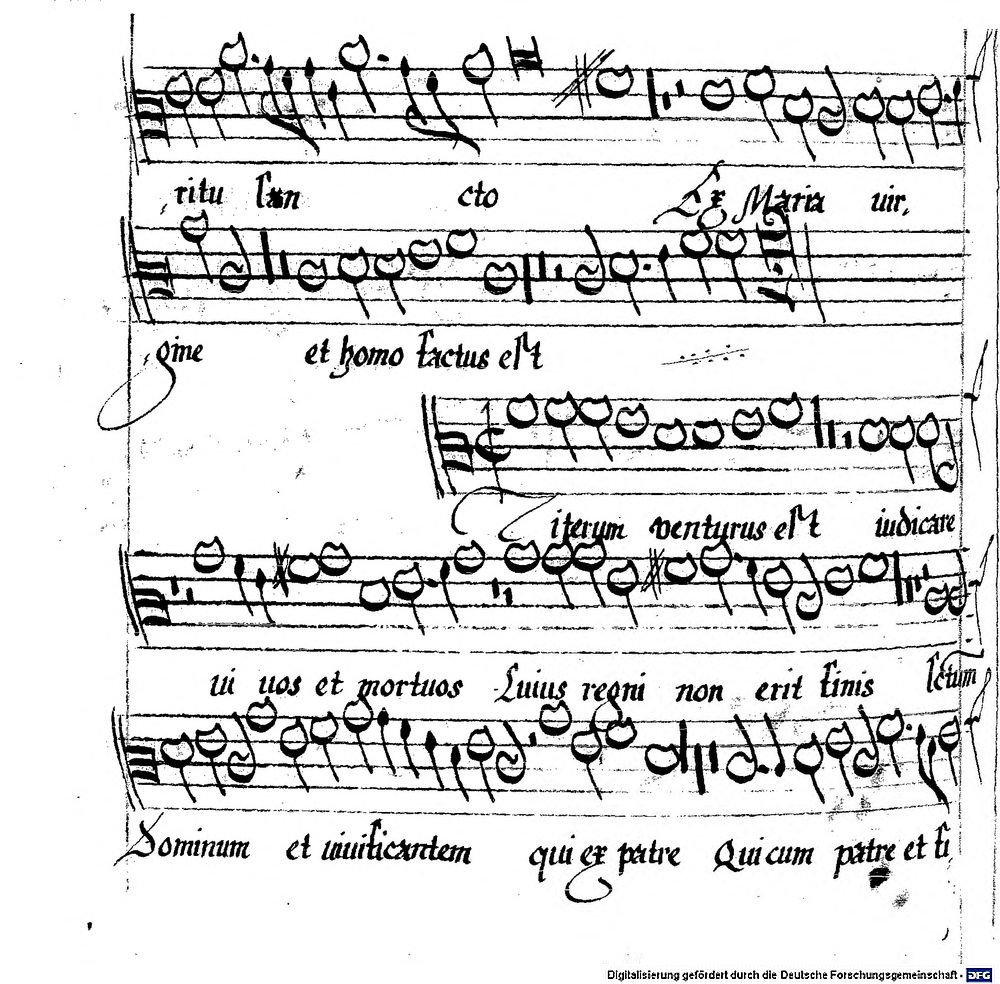 ritu san cto Ex Maria uir,
gine et homo factus est
iterum venturus est iudicare
ui uos et mortuos Cuius regni non erit finis sctum
Dominum et uiuificantem qui ex patre Qui cum patre et fi
Digitalisierung gefördert durch die Deutsche Forschungsgemeinschaft - DFG